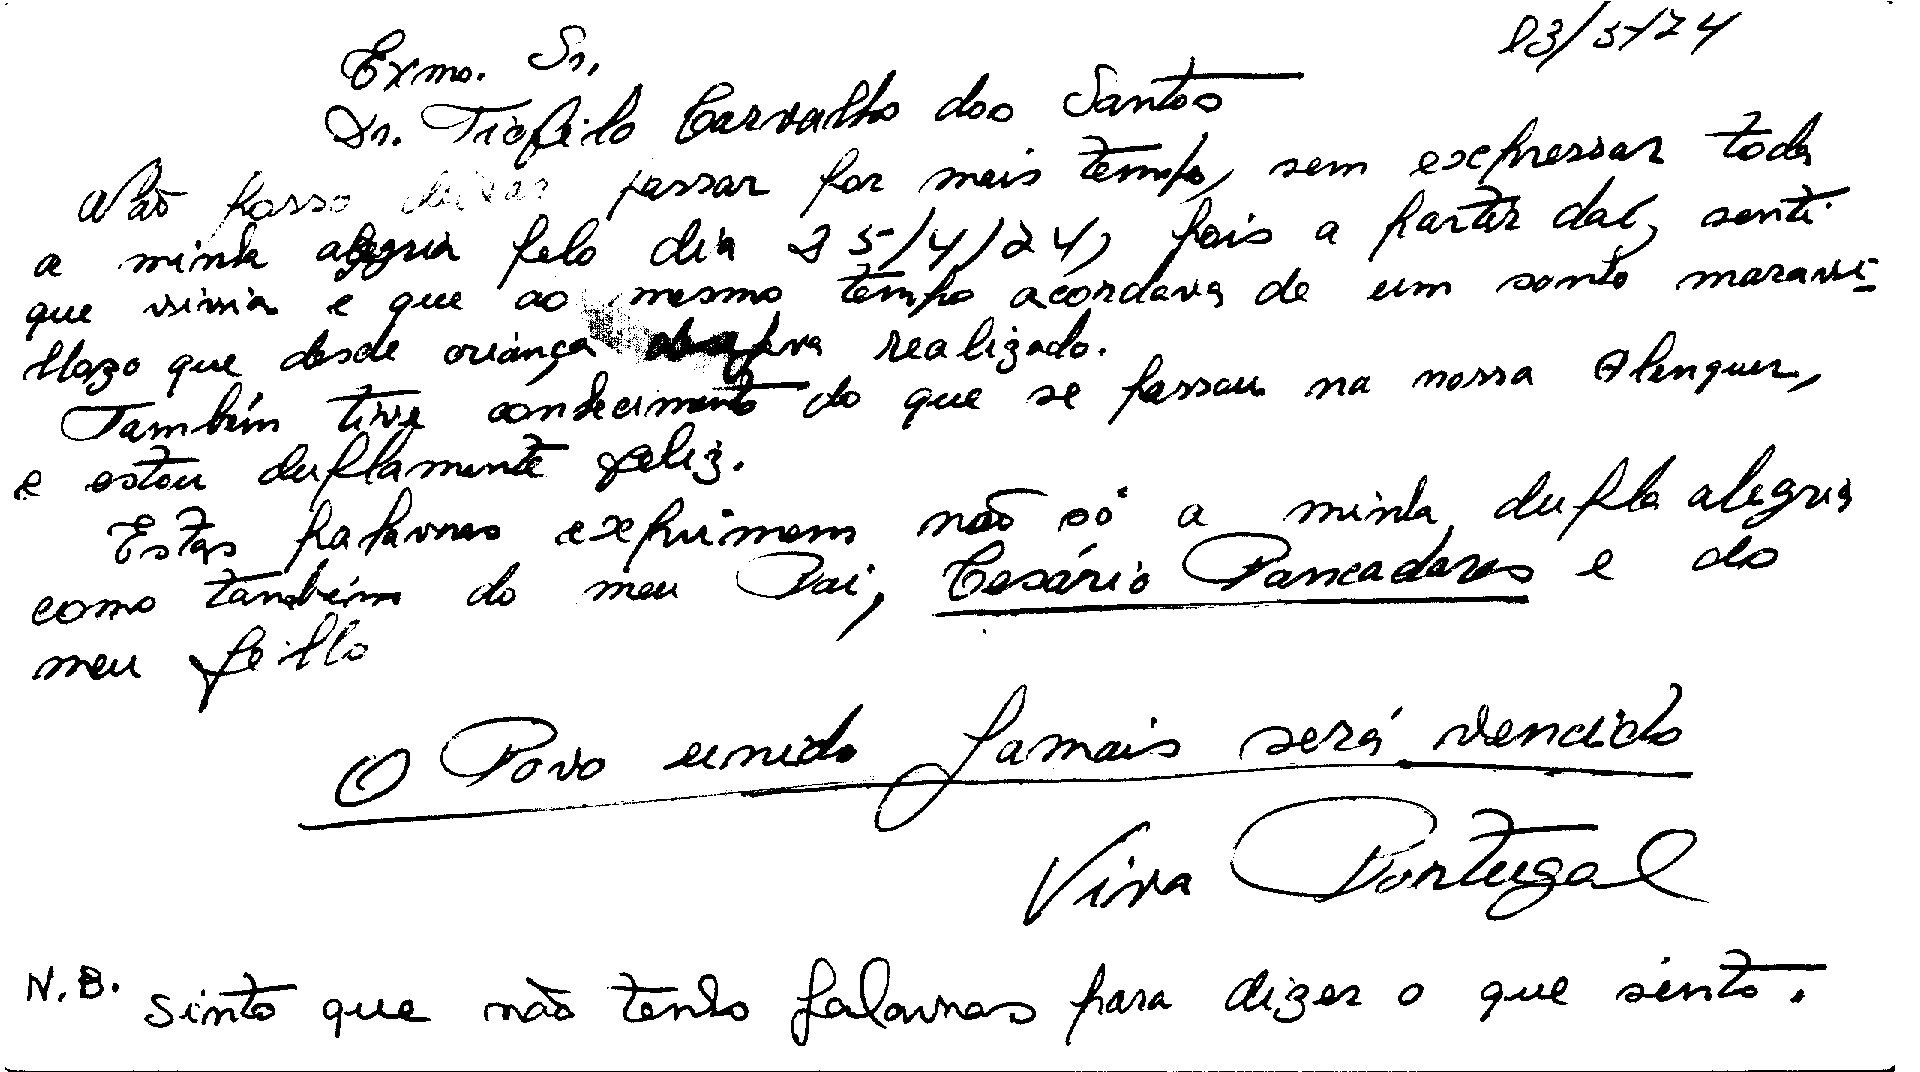 13/5/74
Exmo. Sr.
Dr. Tiófilo Carvalho dos Santos
Não posso deixar passar por mais tempo, sem expressar toda
a minha alegria pelo dia 25/4/74, pois a partir daí, senti
que vivia e que ao mesmo tempo acordava de um sonho maravi-
lhozo que desde criança realizado.
Também tive conhecimento do que se passou na nossa Alenquer,
e estou duplamente feliz.
Estas palavras exprimem não só a minha dupla alegria
como também do meu Pai, Cesário Pancadares e do
meu filho
O Povo unido Jamais será vencido
Viva Portugal
N.B. Sinto que não tenho palavras para dizer o que sinto.